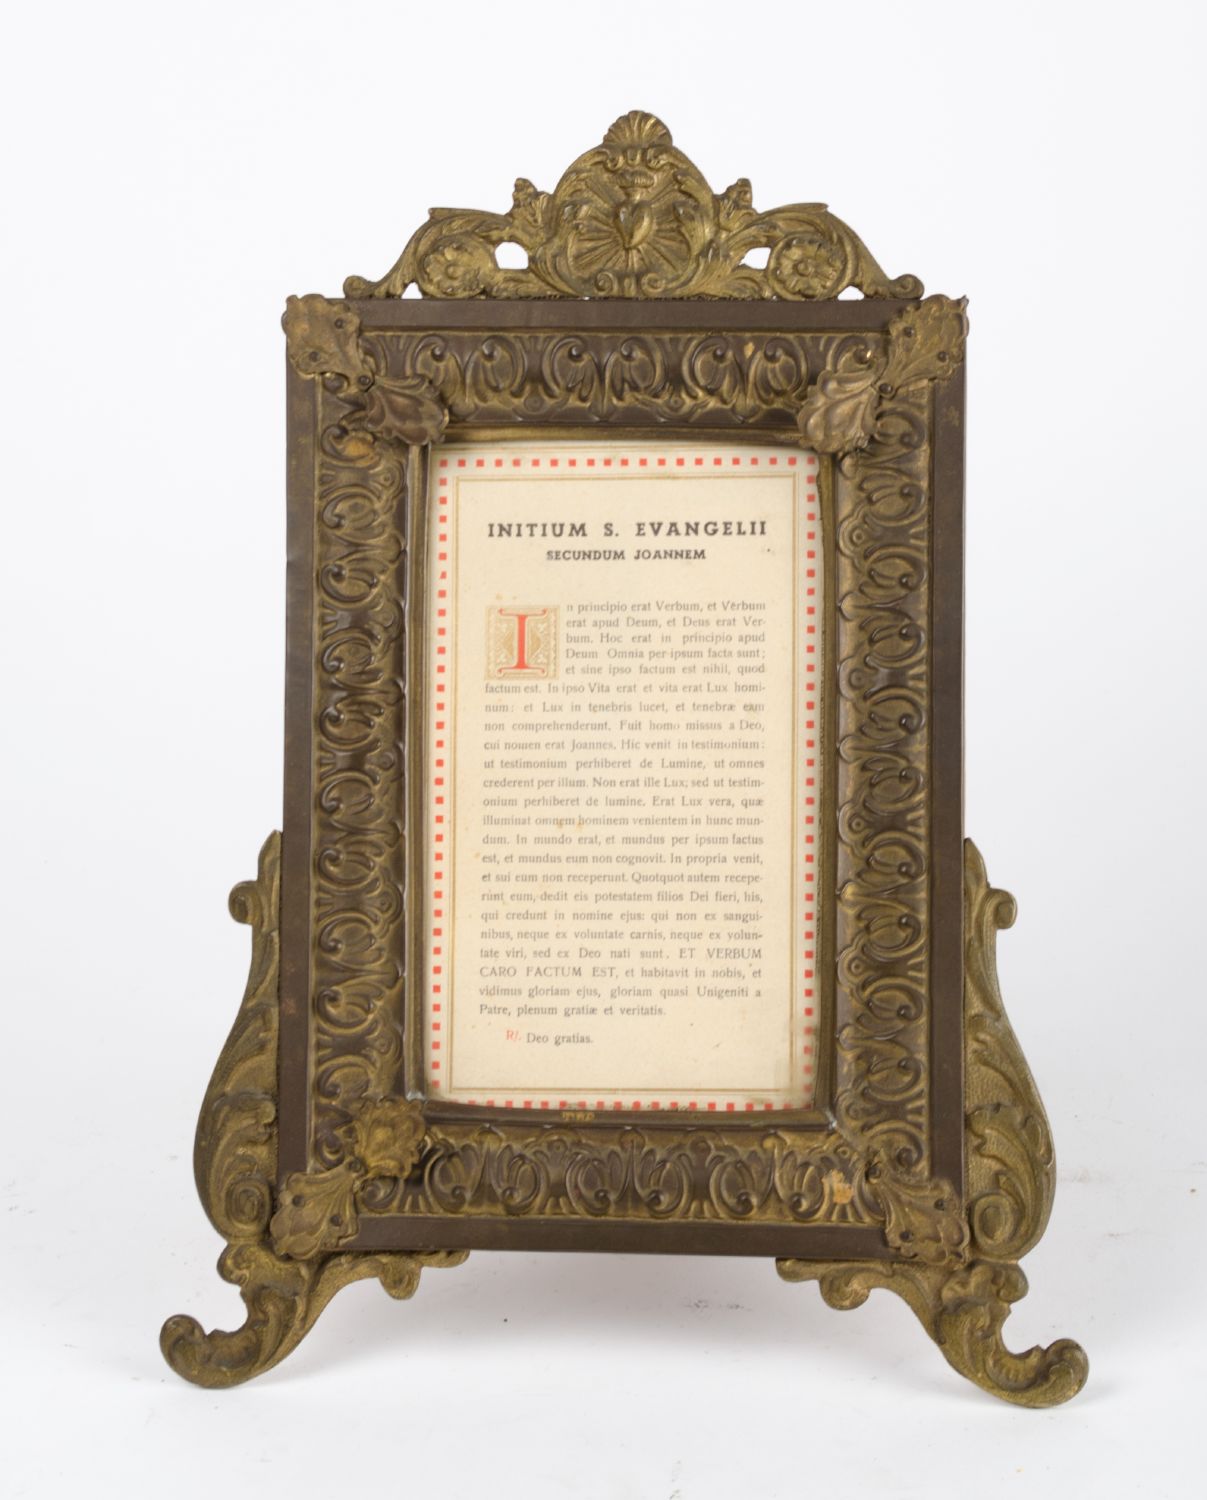 INITIUM S. EVANGELII
SECUNDUM JOANNEM
In principio erat Verbum, et Verbum
erat apud Deum, et Deus erat Ver-
bum. Hoc erat in principio apud
Deum Omnia per ipsum facta sunt;
et sine ipso factum est nihil, quod
factum est. In ipso Vita erat et vita erat Lux homi-
num: et Lux in tenebris lucet, et tenebræ eam
non comprehenderunt. Fuit homo missus a Deo,
cui nomen erat Joannes. Hic venit in testimonium:
ut testimonium perhiberet de Lumine, ut omnes
crederent per illum. Non erat ille Lux; sed ut testim-
onium perhiberet de lumine. Erat Lux vera, quæ
illuminat omnem hominem venientem in hunc mun-
dum. In mundo erat, et mundus per ipsum factus
est, et mundus eum non cognovit. In propria venit,
et sui eum non receperunt. Quotquot autem recepe-
runt eum, dedit eis potestatem filios Dei fieri, his,
qui credunt in nomine ejus: qui non ex sangui-
nibus, neque ex voluntate carnis, neque ex volun-
tate viri, sed ex Deo nati sunt. ET VERBUM
CARO FACTUM EST, et habitavit in nobis, et
vidimus gloriam ejus, gloriam quasi Unigeniti a
Patre, plenum gratiæ et veritatis.
R/. Deo gratias.